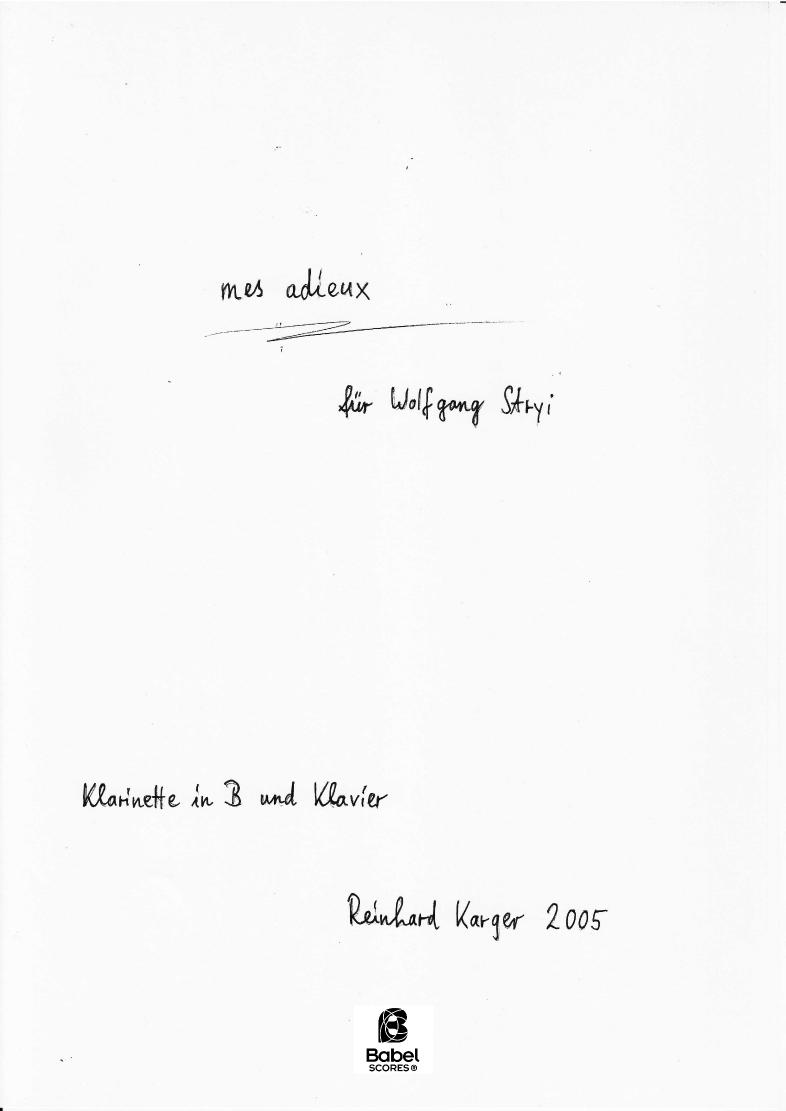 mes adieux
für Wolfgang Stryi
Klarinette in B und Klavier
Reinhard Karger 2005
Babel
SCORES®